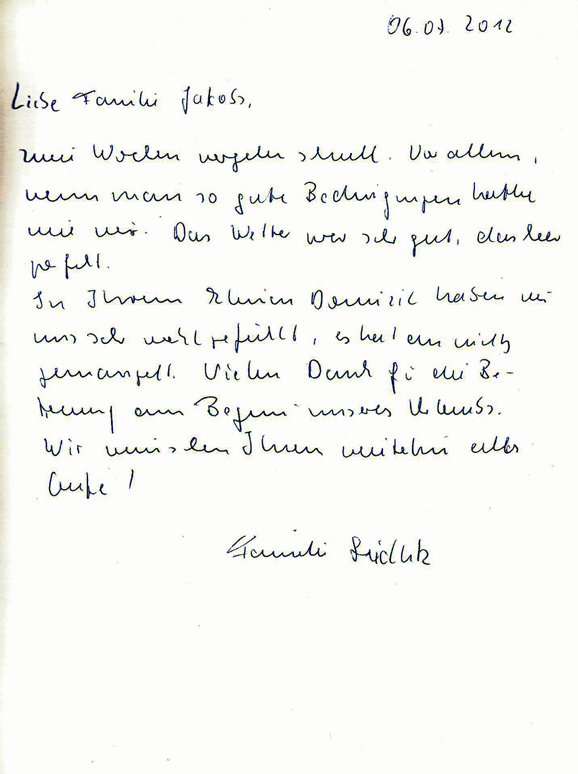 06.07.2012
Liebe Familie Jakobs,
zwei Wochen vergehen schnell. Vor allem,
wenn man so gute Bedingungen hatte
wie wir. Das Wetter war sehr gut, das Meer
gefiel.
In Ihrem kleinen Domizil haben wir
uns sehr wohl gefühlt, es hat an nichts
gemangelt. Vielen Dank für die Be-
treuung am Beginn unseres Urlaubs.
Wir wünschen Ihnen weiterhin alles
Gute!
Familie